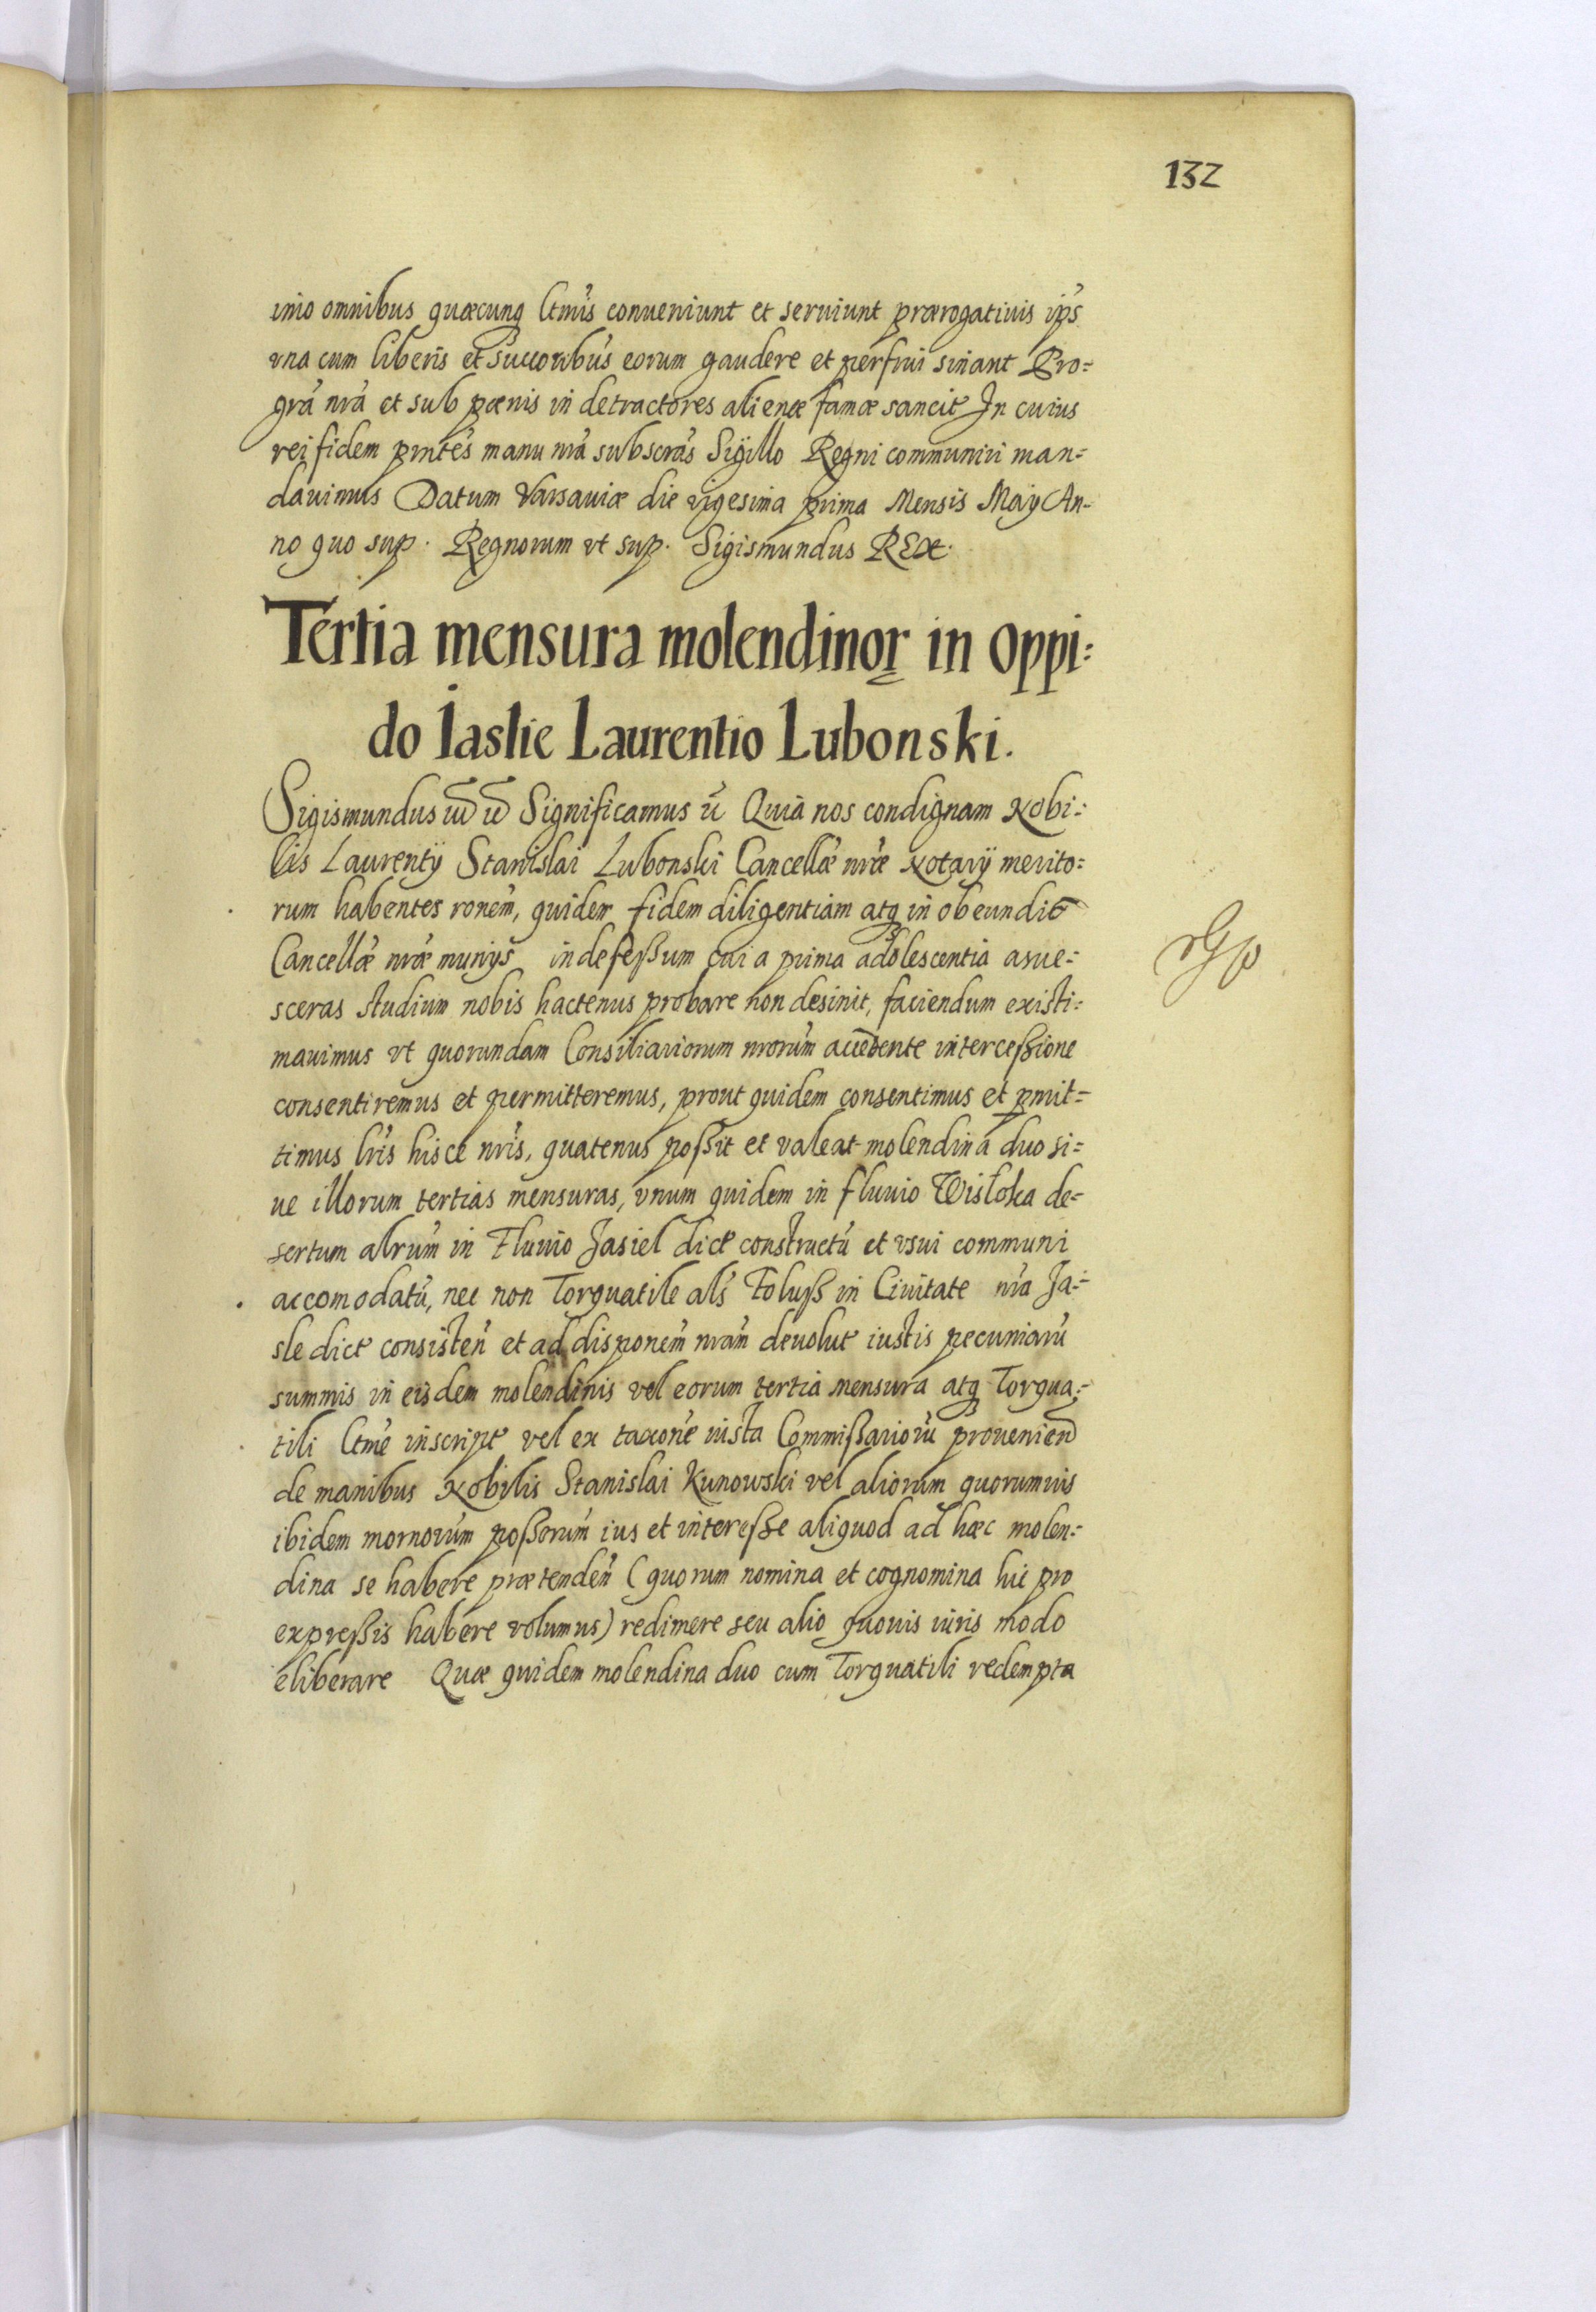 132
imo omnibus quæcunq ltmis conueniunt et seruiunt prærogatiuis ips
vna cum liberis et succoribus eorum gaudere et perfrui sinant Pro=
gra nra et sub pœnis in detractores alienæ famæ sancit In cuius
rei fidem pntes manu nra subscras Sigillo Regni communiri man=
dauimus Datum Varsauiæ die vigesima prima Mensis Maij An-
no quo sup. Regnorum vt sup. Sigismundus REX.
Tertia mensura molendinor in oppi:
do Iaslie Laurentio Lubonski.
Sigismundus Significamus Quia nos condignam Nobi:
lis Laurentij Stanislai Lubonski Cancellæ nræ Notarij merito=
rum habentes ronem, quidem fidem diligentiam atq in obeundis
Cancellæ nræ munijs indefeßum cui a prima adolescentia asue=
sceras studium nobis hactenus probare non desinit, faciendum existi:
mauimus vt quorundam Consiliariorum nrorum accedente interceßione
consentiremus et permitteremus, prout quidem consentimus et pmit=
timus lris hisce nris, quatenus poßit et valeat molendina duo si=
ue illorum tertias mensuras, vnum quidem in fluuio Wisłoka de=
sertum alrum in Fluuio Jasiel dict constructu et vsui communi
accomodatu, nec non Torquatile als Foluß in Ciuitate nra Ja=
sle dict consisten et ad disponem nram deuolut iustis pecuniaru
summis in eisdem molendinis vel eorum tertia mensura atq Torqua=
tili ltme inscript vel ex taxone iusta Commißarioru prouenien
de manibus Nobilis Stanislai Kunowski vel aliorum quorumuis
ibidem mornorum poßorum ius et intereße aliquod ad hæc molen=
dina se habere prætenden (quorum nomina et cognomina hic pro
expreßis habere volumus) redimere seu alio quouis iuris modo
eliberare Quæ quidem molendina duo cum Torquatili redempta